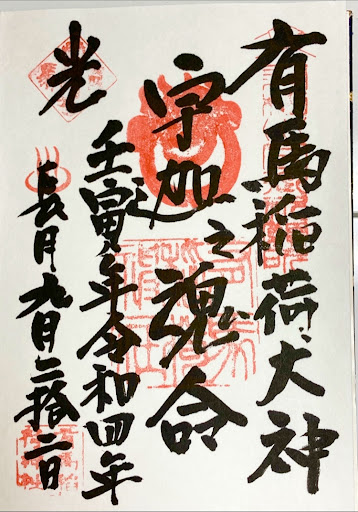 有馬稲荷大神
宇加之魂命
壬寅年令和四年
光
長月九月二拾二日